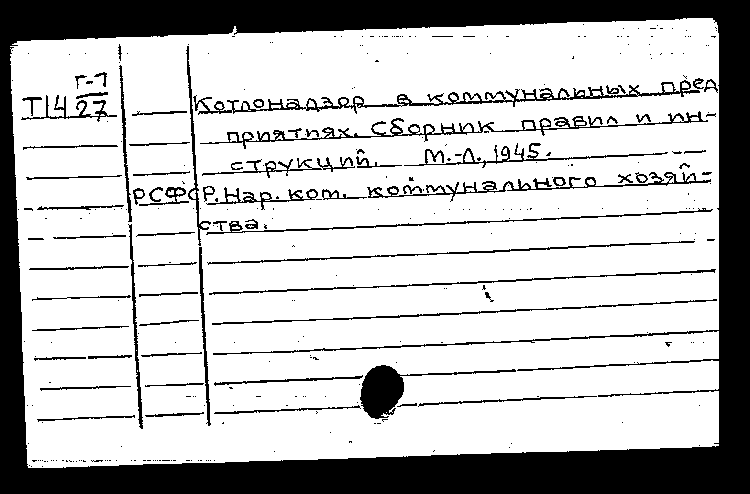 Т14 Г-7/27
Котлонадзор в коммунальных пред
приятиях. Сборник правил и ин-
струкций. М.-Л., 1945.
РСФСР. Нар. ком. коммунального хозяй-
ства.